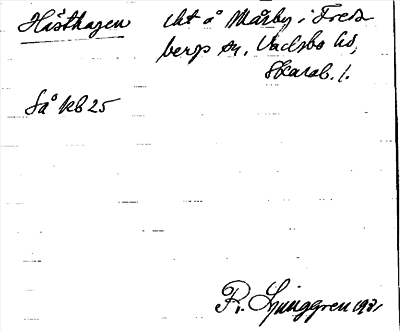 Hästhagen
vht å Mårby i Freds-
bergs sn. Vadsbo hd,
Skarab. l.
Så kb 25
R. Ljunggren 1931